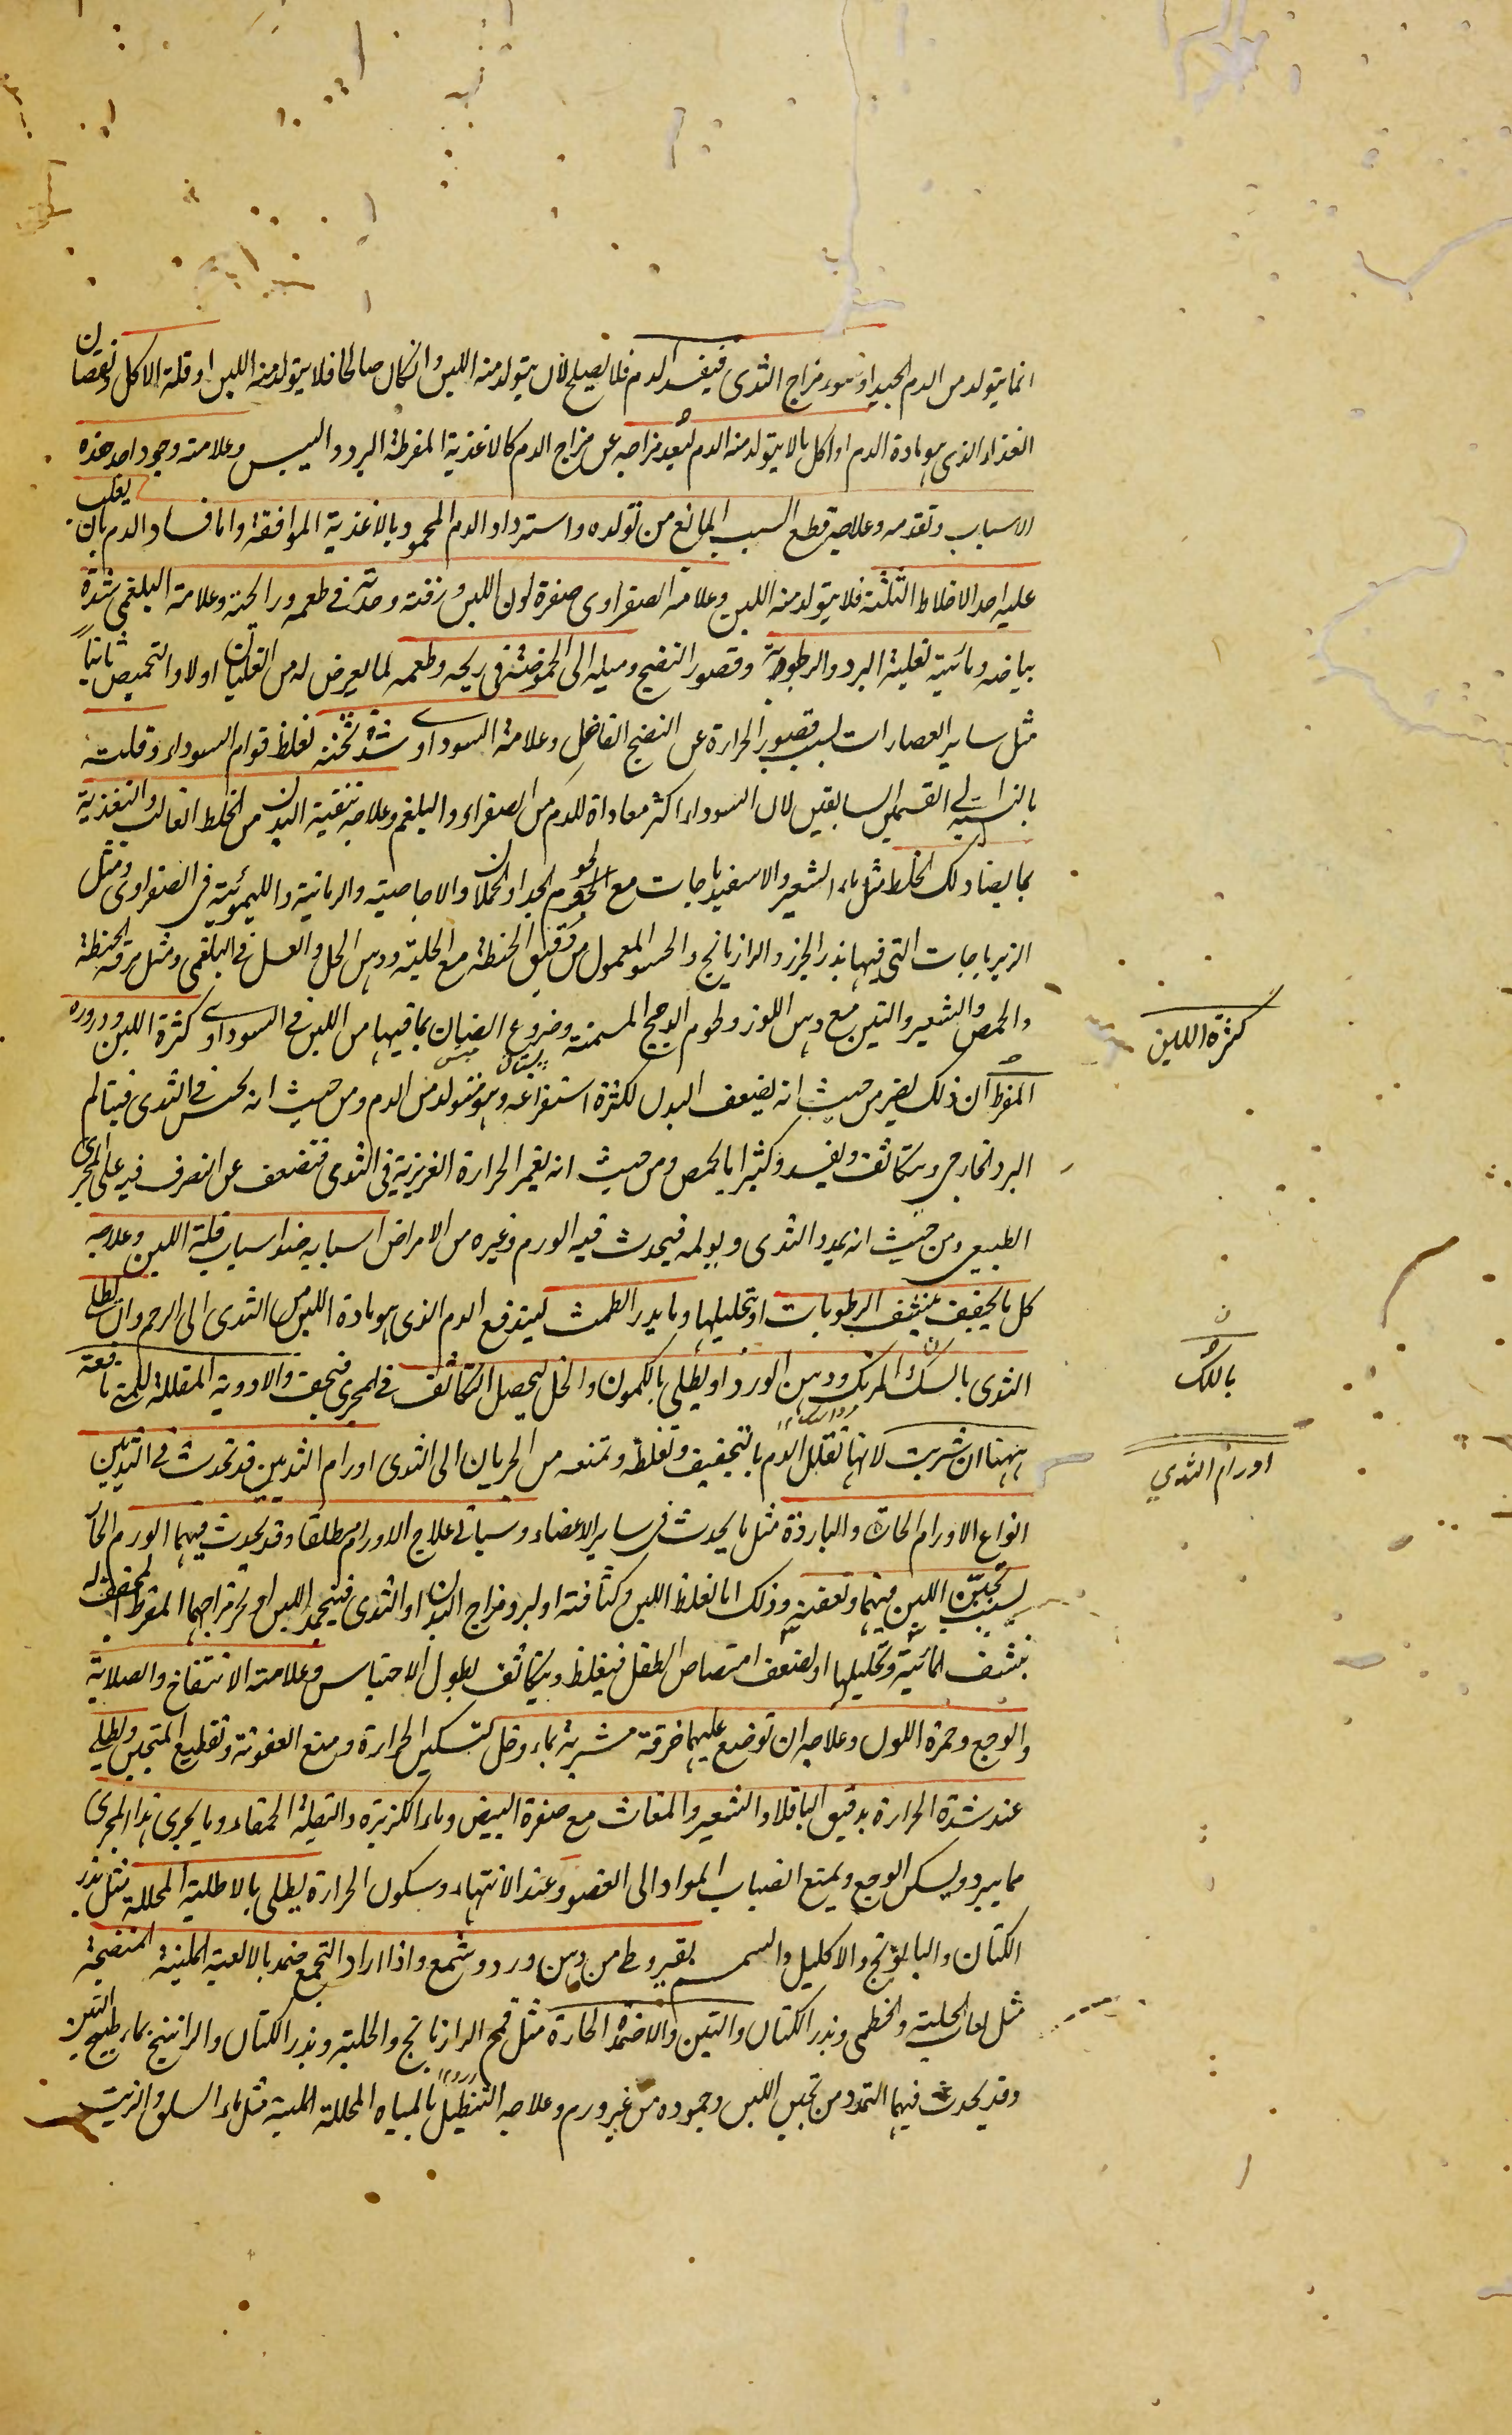 انما يتولد من الدم الجيد او سوء مزاج الثدى فيفسد الدم فلا يصلح لان يتولد منه اللبن وان كان صالحا فلا يتولد منه اللبن او قلة الاكل ونقصان
الغذاء الذى هو مادة الدم او اكل ما لا يتولد منه الدم لبعد مزاجه عن مزاج الدم كالاغذية المفرطة البرد واليبس وعلامته وجود احد هذه
الاسباب وتقدمه وعلاجه قطع السبب المانع من تولده واسترداد الدم المحمود بالاغذية الموافقة واما فساد الدم بان يغلب
عليه احد الاخلاط الثلثة فلا يتولد منه اللبن وعلامة الصفراوى صفرة لون اللبن ورقته وحدته فى طعمه ورائحته وعلامة البلغمى شدة
بياضه ومائيته لغلبة البرد والرطوبة وقصور النضج وميله الى الحموضة فى ريحه وطعمه لما يعرض له من الغليان اولا والتحميض ثانيا
مثل ساير العصارات لسبب قصور الحرارة عن النضج الفاضل وعلامة السوداوى شدة ثخنه لغلظ قوام السوداء وقلته
بالنسبة الى القسمين السابقين لان السوداء اكثر معاداة للدم من الصفراء والبلغم وعلاجه تنقية البدن من الخلط الغالب والتغذية
بما يضاد ذلك الخلط مثل ماء الشعير والاسفيدباجات مع لحوم الجدا والحملان والاجاصية والرمانية والليموئية فى الصفراوى ومثل
الزيرباجات التى فيها بذر الجزر والرازيانج والحسو المعمول من دقيق الحنطة مع الحلبة ودهن الحل والعسل فى البلغمى ومثل مرقة الحنطة
والحمص والشعير والتين مع دهن اللوز ولحوم الدجج المسمنة وضروع الضان بما فيها من اللبن فى السوداوى كثرة اللبن ودروره
المفرط ان ذلك يضر من حيث انه يضعف البدن لكثرة استفراغه وهو متولد من الدم ومن حيث انه يحتبس فى الثدى فيتالم
البرد الخارجى ويتكاثف ويفسد وكثيرا ما يحمص ومن حيث انه يغمر الحرارة الغريزية فى الثدى فتضعف عن التصرف فيه على المجرى
الطبيعى ومن حيث انه يمدد الثدى ويولمه فيحدث فيه الورم وغيره من الامراض اسبابه ضد اسباب قلة اللبن وعلاجه
كل ما يجفف بنشف الرطوبات او تحليلها وما يدر الطمث ليندفع الدم الذى هو مادة اللبن من الثدى الى الرحم وان يطلى
الثدى بالسك والمرتك ودهن الورد او يطلى بالكمون والخل ليحصل التكاثف فى المجرى فيجف والادوية المقللة للمنى نافعة
ههنا ان شربت لانها تقلل الدم بالتجفيف وتغلظه وتمنعه من الجريان الى الثدى اورام الثديين قد تحدث فى الثديين
انواع الاورام الحارة والباردة مثل ما يحدث فى ساير الاعضاء وسياتى علاج الاورام مطلقا وقد يحدث فيهما الورم الحار
لسبب تجبن اللبن فيهما وتعفنه وذلك اما لغلظ اللبن وكثافته او لبرد مزاج البدن او الثدى فينجمد اللبن او لحر مزاجهما المفرط المجفف له
بنشف المائية وتحليلها او لضعف امتصاص الطفل فيغلظ ويتكاثف لطول الاحتباس وعلامته الانتفاخ والصلابة
والوجع وحمرة اللون وعلاجه ان توضع عليهما خرقة مشربة بماء وخل لتسكين الحرارة ومنع العفونة وتقطيع المتجبن ويطلى
عند شدة الحرارة بدقيق الباقلا والشعير والمغاث مع صفرة البيض وماء الكزبرة والبقلة الحمقاء وما يجرى هذا المجرى
مما يبرد ويسكن الوجع ويمنع انصباب المواد الى العضو وعند الانتهاء وسكون الحرارة يطلى بالاطلية المحللة مثل بذر
الكتان والبابونج والاكليل والسمسم بقيروطى من دهن ورد وشمع واذا اراد التجمع ضمد بالالعبة الملينة المنضجة
مثل لعاب الحلبة والخطمى وبذر الكتان والتين والاضمدة الحارة مثل قمح الرازيانج والحلبة وبذر الكتان والراتينج بماء طبيخ التين
وقد يحدث فيهما التمدد من تجبن اللبن وجموده من غير ورم وعلاجه التنطيل بالمياه المحللة الملينة مثل ماء السلق والزيت
كثرة اللبن
بالسك
اورام الثدي